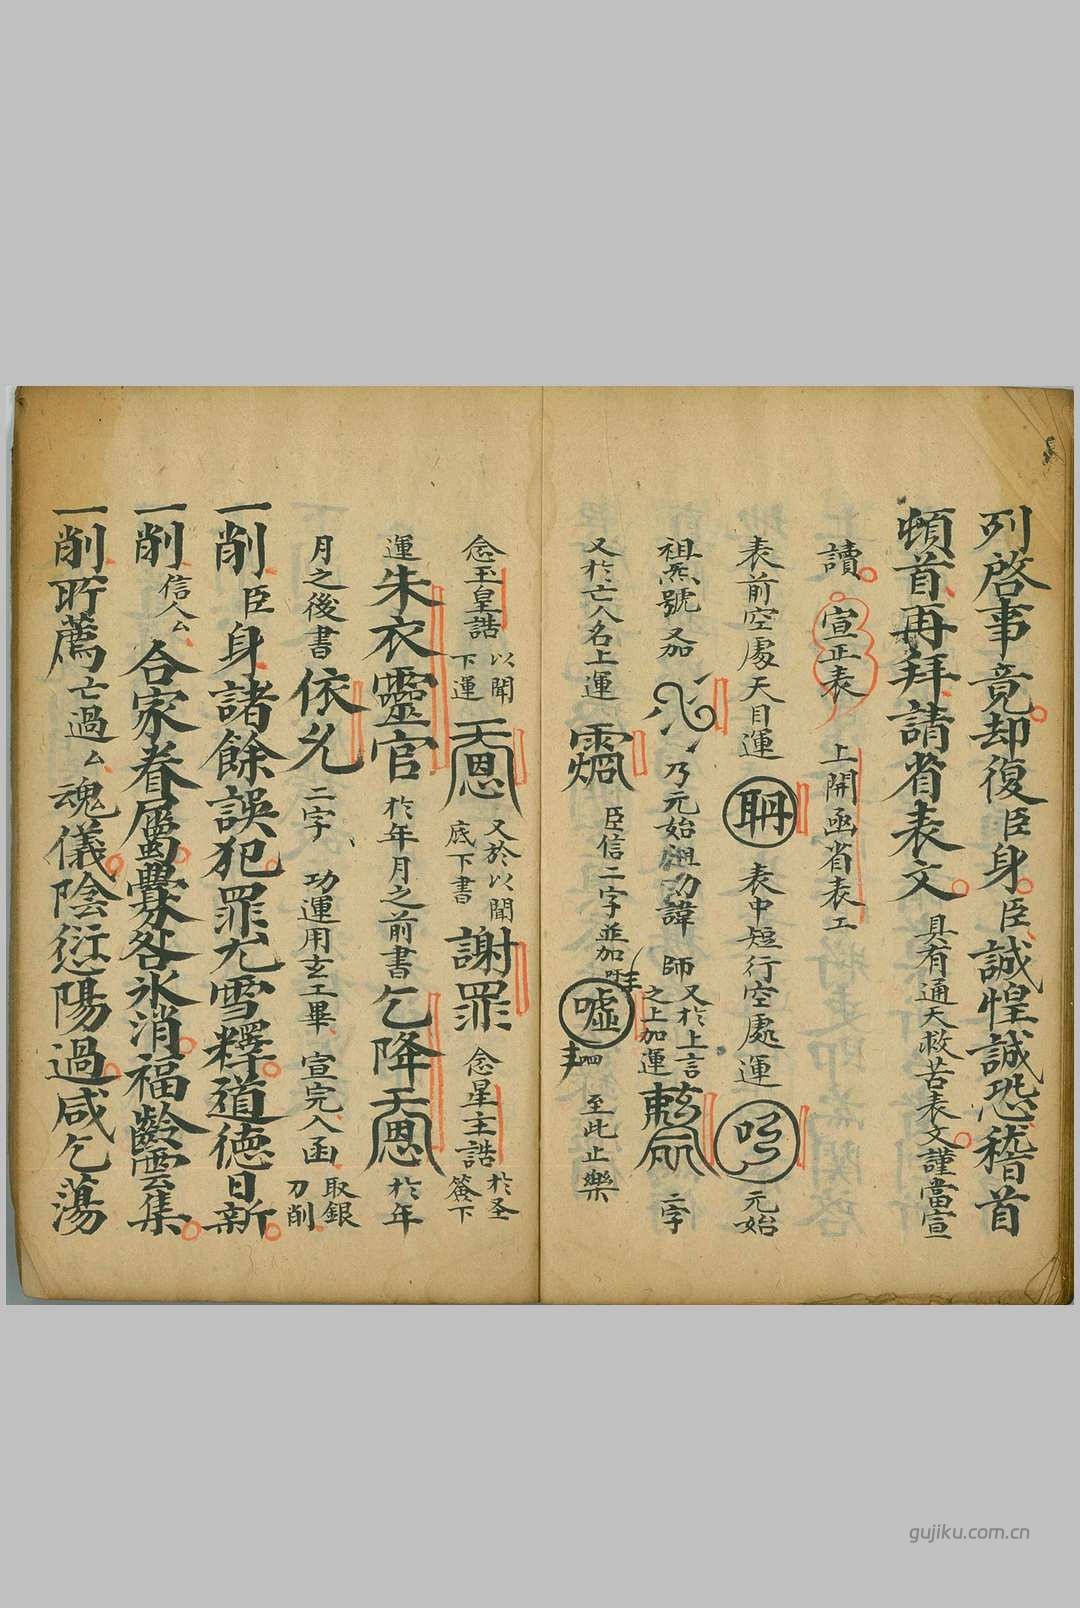 列啓事竟却復臣身臣誠惶誠恐稽首
頓首再拜請省表文具有通天救苦表文謹當宣
讀宣正表上開函省表工
表前空處天目運聃表中短行空處運元始
祖炁號又加乃元始祖劝諱師又於上言之上加運二字
又於亡人名上運臣信二字並加噓至此止樂
念玉皇誥以聞下運又於以聞底下書謝罪念星主誥於圣簽下
運朱衣靈官於年月之前書乞降於年
月之後書依允二字功運用玄工畢宣完入函取銀刀削
一削臣身諸餘誤犯罪尤雪釋道德日新
一削信人厶合家眷屬釁咎氷消福齡雲集
一削所薦亡過厶魂儀陰愆陽過咸乞蕩
gujiku.com.cn